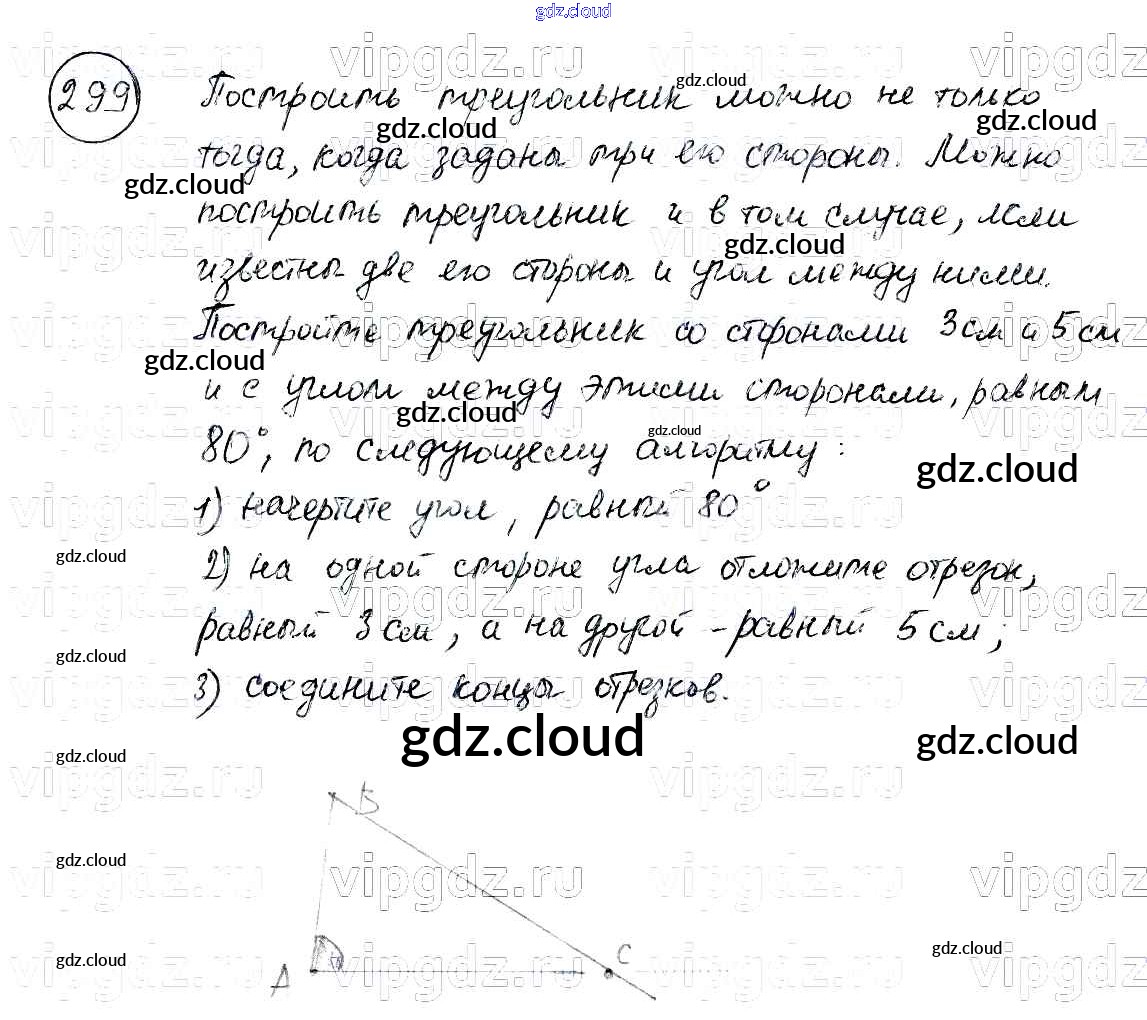 gdz.cloud
299 Построить треугольник можно не только
тогда, когда заданы три его стороны. Можно
построить треугольник и в том случае, если
известны две его стороны и угол между ними.
Постройте треугольник со сторонами 3 см и 5 см
и с углом между этими сторонами, равным
80°, по следующему алгоритму:
1) начертите угол, равный 80°
2) на одной стороне угла отложите отрезок,
равный 3 см, а на другой - равный 5 см;
3) соедините концы отрезков.
gdz.cloud
gdz.cloud
B
A
C
vipgdz.ru